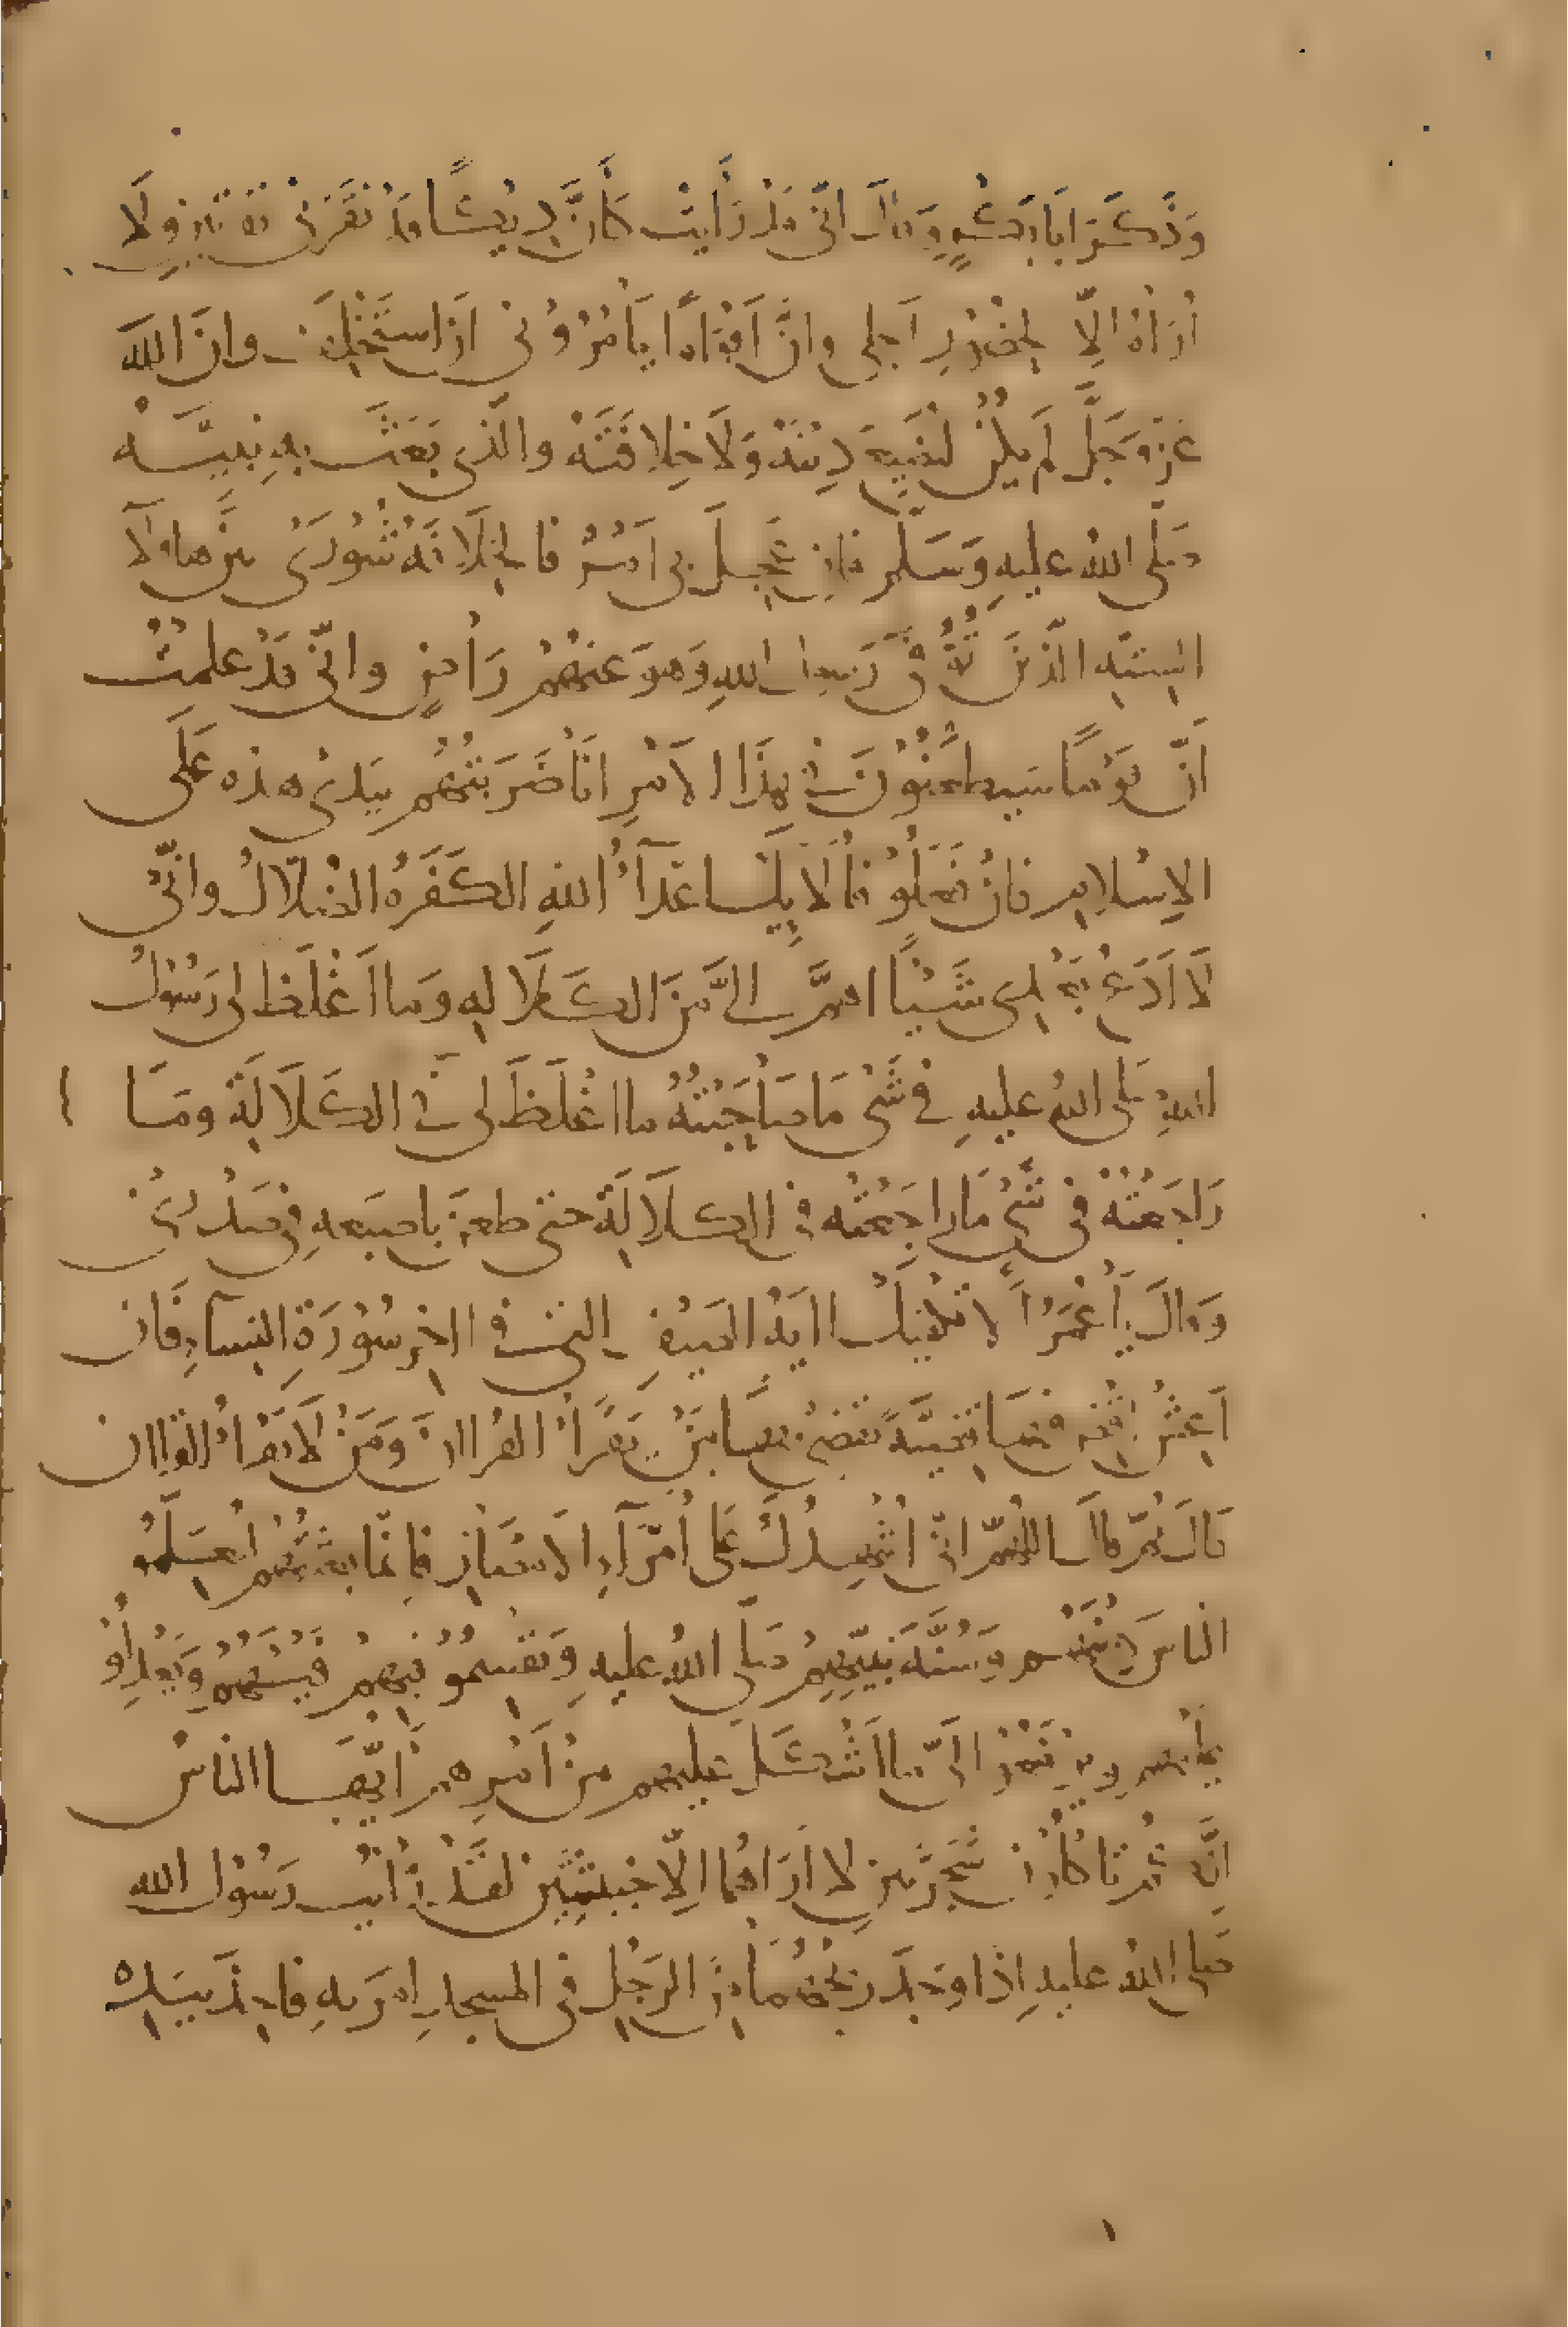 وَذَكَرَ ابَا بَكْرٍ وَقَالَ انّي قَدْ رَأيتُ كَأَنَّ ديكًا قَدْ نَقَرَني نقرتين ولَا
أُرَاهُ الّا لحُضُورِ اَجلي وانَّ اَقْوَامًا يَأمُرُوُنى ان استَخْلِفَ وانَ اللّهَ
عَزّ وَجَلَّ لَم يكُن لُيضَيِعَ دِينَهُ وَلَا خِلافَتَهُ والّذي بَعَثَ بِهِ نبيَّهُ
صَلّى اللهُ عليهِ وَسَلّم فانِ عَجِلَ بي اَمْرٌ فالخِلَافَهُ شُورَى بين هاولَآ
السِتّهِ الّذينَ تُوُفّيَ رَسول اللهِ وَهوَ عَنهُمْ رَاضٍ وانّي قَدْ علمتُ
اَنّ قَوْمًا سَيطعَنُوُنَ في هذَا الاَمْرِ انَا ضَرَبتُهُم بيَدى هذه عَلَى
الاِسْلامِ فانْ فَعَلُوْ فأُلَايِكَ اعْدَآءُ اللهِ الكَفَرَهُ الضُلّالُ وانّي
لَا اَدَعُ بَعْدى شَيْئًا اهمَّ الىَّ مِنَ الكَلَالهِ وَما اَغْلَظَ لى رَسُولُ
اللهِ صَلى اللهُ عليهِ في شَىْ مَا صَاحَبْتُهُ ما اغْلَظَ لى في الكَلَالَة ومَا
رَاجَعْتُهُ في شَىْ مَا راجَعْتُه في الكلَالَة حتى طعَنَ باصبَعهِ في صَدْرىْ
وَقَالَ يَا عُمَرُ اَلا تكْفيكَ اايَةُ الصَيْفِ التي في ااخِر سُوْرَةِ النِسَآءِ فَان
اَعِشْ اقْضِ فيهَا بقَضِيَّةٍ يَقضِىْ بهَا مَنْ يَقْرَأُ القُراانَ وَمَنْ لَا يَقْرَأُ القراان
قالَ ثُمّ قالَ اللهُمّ انّي اُشْهِدُكَ عَلى اُمَرَآءِ الاَمْصَارِ فانمّا بعثتُهُم ليُعَلِمُو
الناسَ دِيْنَهُم وَسُنَّةَ نَبيّهِمْ صَلّى اللهُ عليهِ وَيَقْسِمُوُ فيهِمْ فَيْئَهُمْ وَيَعْدِلُوُ
عليْهم ويرْفَعُوْ الَىّ ما اَشْكَلَ عليهم مِنْ اَمْرِهمْ اَيّهَا الناسُ
انَّكمْ تاكلُونَ شَجَرَتينِ لا اُرَاهُما الّا خَبيثَتَين لقَدْ رَأيتُ رَسُولَ الله
صَلى اللهُ عليهِ اِذَا وَجَدَ ريحَهُمَا مِنَ الرَجُلِ في المسجدِ امَرَ بهِ فاُخِذَ بيَدِه